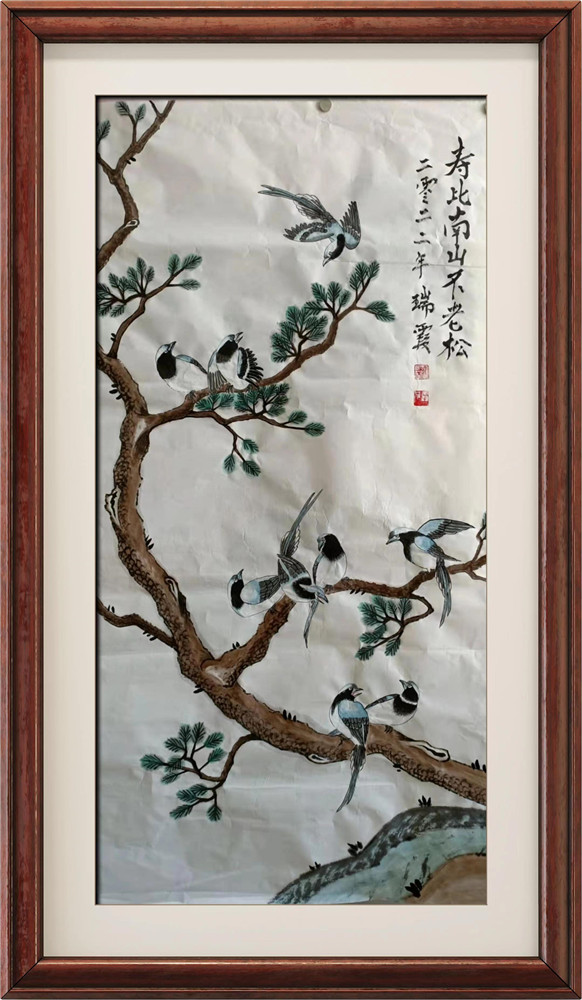 寿比南山不老松
二零二二年 瑞霞